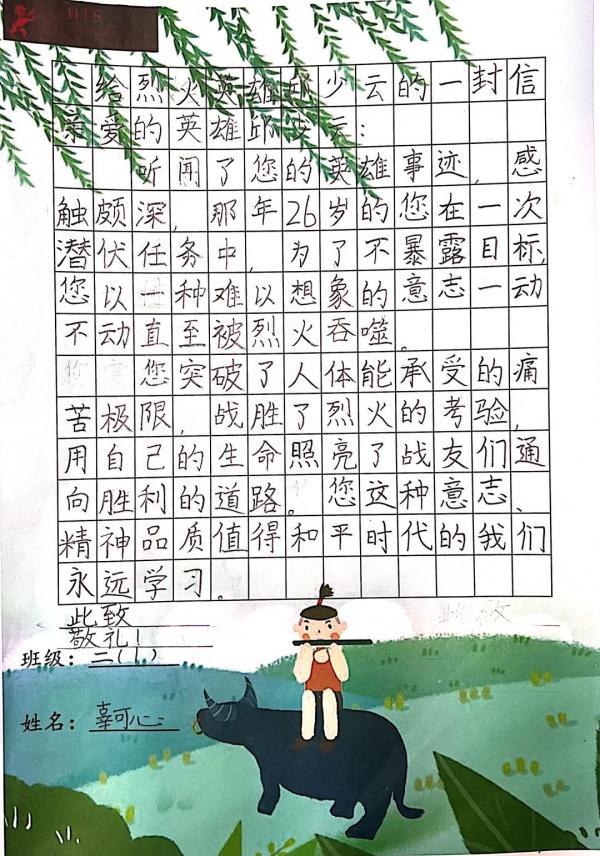 给烈火英雄邱少云的一封信
亲爱的英雄邱少云：
听闻了您的英雄事迹，感
触颇深，那年26岁的您在一次
潜伏任务中，为了不暴露目标，
您以一种难以想象的意志一动
不动直至被烈火吞噬。
您突破了人体能承受的痛
苦极限，战胜了烈火的考验，
用自己的生命照亮了战友们通
向胜利的道路。您这种意志、
精神品质值得和平时代的我们
永远学习。
此致
敬礼！
班级：二(1)
姓名：辜可心